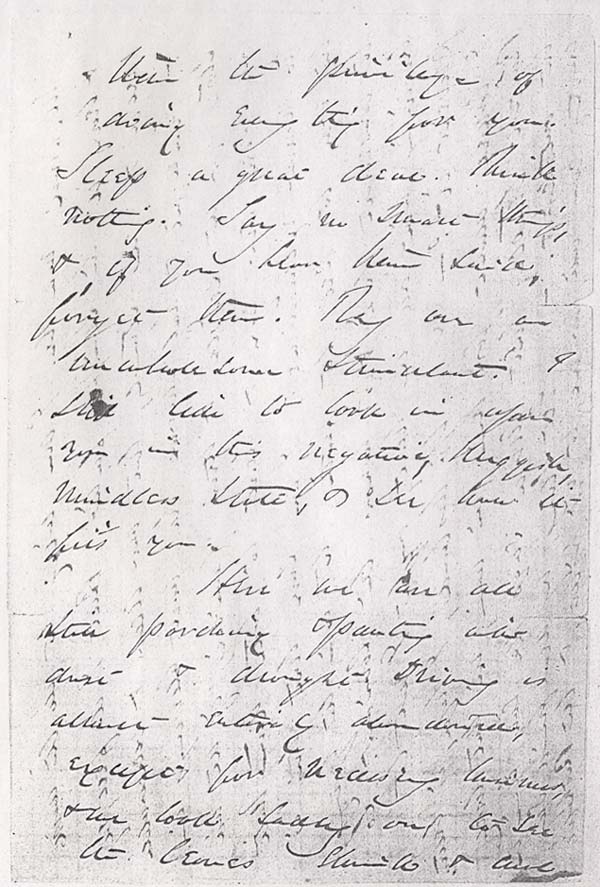 the privilege of
doing every thing for you.
Sleep a great deal. Think
nothing. Say no smart things,
& if you hear them said,
forget them. They are an
unwholesome Stimulant. I
like to look in upon
you in this negative, sluggish,
mindless state, & see how it
fits you.
Here we are all
still panting with
dust & drought. Driving is
almost entirely abandoned,
except for necessary business,
& we look sadly out to see
the leaves shrink & curl